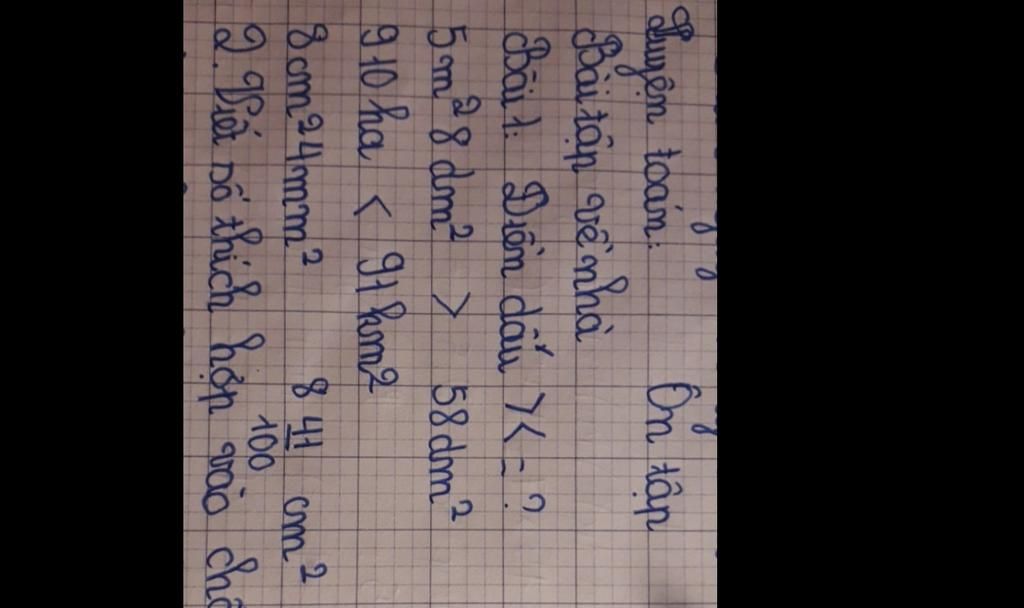 Luyện toán: Ôn tập
Bài tập về nhà
Bài 1: Điền dấu > < = ?
5m² 8dm² > 58dm²
910ha < 91km²
8cm² 4mm² 8 41/100 cm²
2. Viết số thích hợp vào chỗ